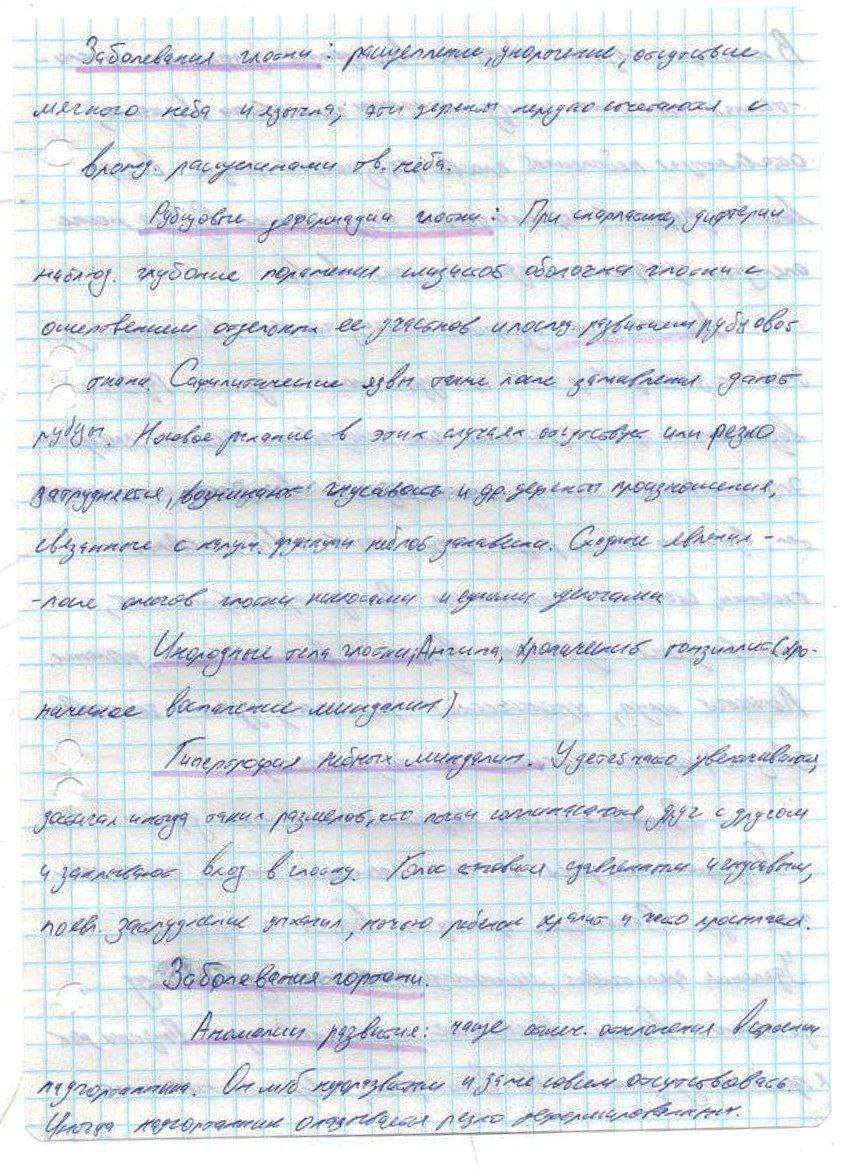 Заболевания глотки: расщепление, укорочение, отсутствие
мягкого неба и язычка; эти дефекты нередко сочетаются с
врожд. расщелинами тв. неба.
Рубцовые деформации глотки: При скарлатине, дифтерии
наблюд. глубокие поражения слизистой оболочки глотки с
омертвением отдельных ее участков и послед. развитием рубцовой
ткани. Сифилитические язвы также после заживления дают
рубцы. Носовое дыхание в этих случаях отсутствует или резко
затрудняется, возникают гнусавость и др. дефекты произношения,
связанные с наруш. функции небной занавески. Сходные явления -
- после ожогов глотки кислотами и едкими щелочами
Инородные тела глотки; Ангина, хронический тонзиллит (хро-
ническое воспаление миндалин)
Гипертрофия небных миндалин. У детей часто увеличиваются,
достигая иногда таких размеров, что почти соприкасаются друг с другом
и закрывают вход в глотку. Голос становится сдавленным и гнусавым,
появ. затруднение дыхания, ночью ребенок храпит и часто просыпается.
Заболевания гортани.
Аномалии развития: чаще отмеч. отклонения в строении
надгортанника. Он м/б недоразвитым и даже совсем отсутствовать.
Иногда надгортанник оказывается резко деформированным.